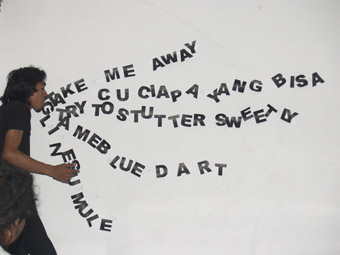 TAKE ME AWAY
CU CIAPA YANG BISA
TRY TO STUTTER SWEETLY
MEB LUE DART
MULE